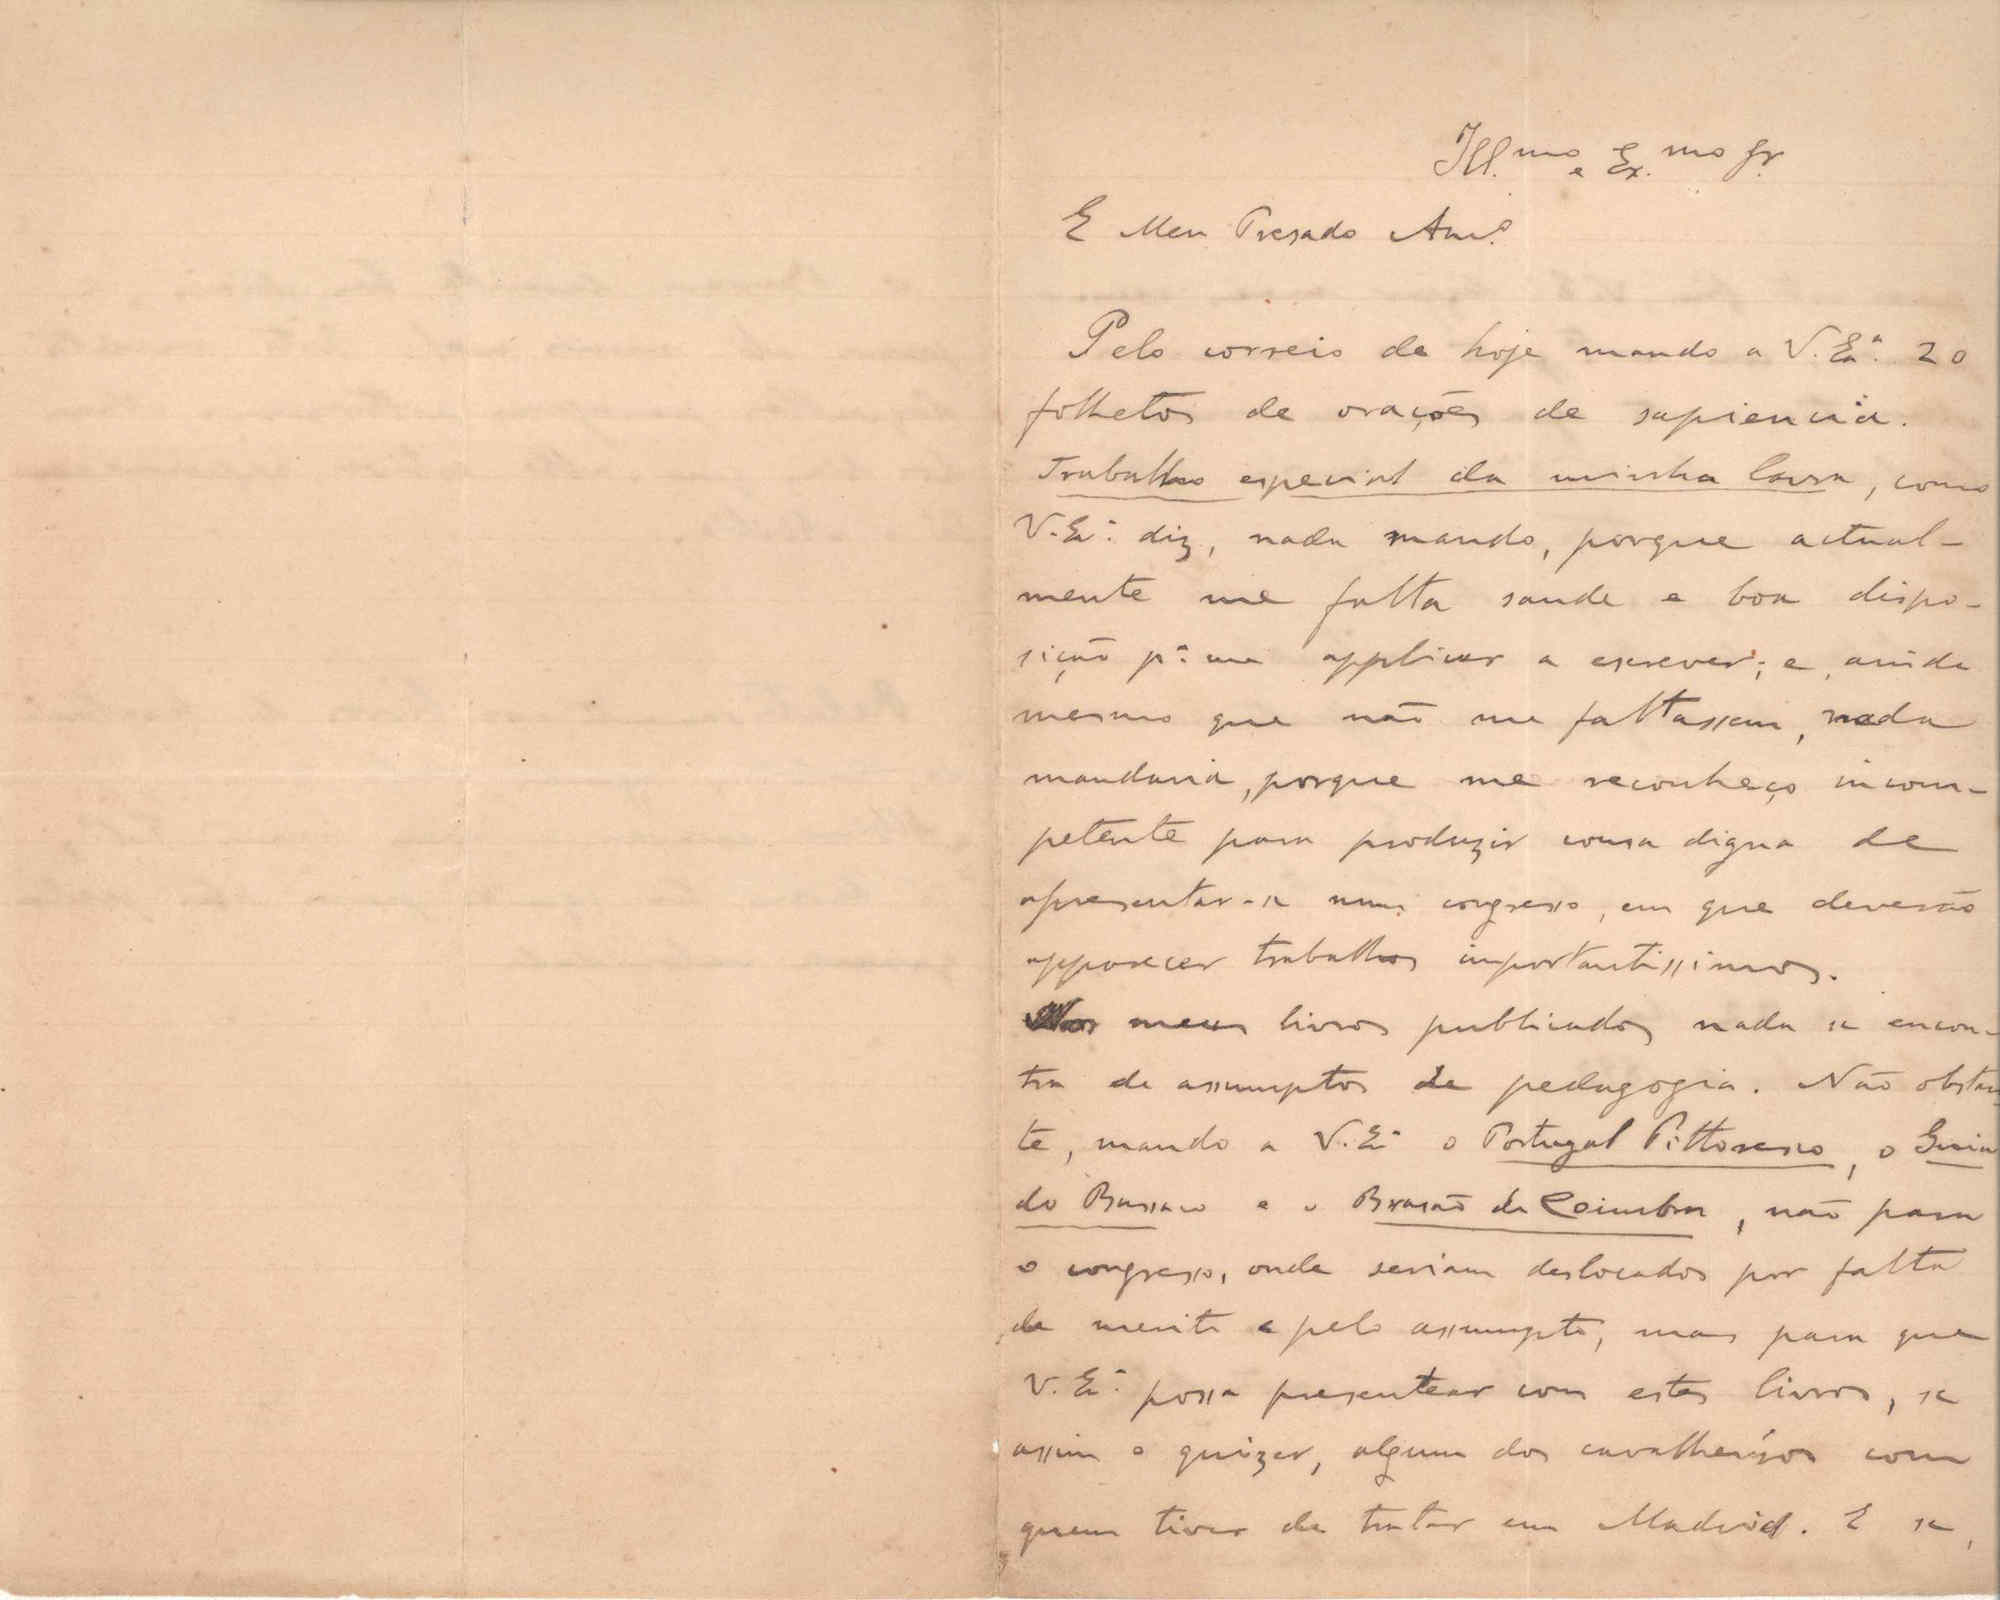 Ill.mo e Ex.mo Sr.
E Meu Presado Am.º
Pelo correio de hoje mando a V. Ex.ª 20
folhetos de orações de sapiencia.
Trabalho especial da minha lavra, como
V. Ex.ª diz, nada mando, porque actual-
mente me falta saude e boa dispo-
sição p.ª me applicar a escrever; e, ainda
mesmo que não me faltassem, nada
mandaria, porque me reconheço incom-
petente para produzir cousa digna de
apresentar-se num congresso, em que deverão
apparecer trabalhos importantissimos.
Nos meus livros publicados nada se encon-
tra de assumptos de pedagogia. Não obstan-
te, mando a V. Ex.ª o Portugal Pittoresco, o Guia
do Bussaco e o Brasão de Coimbra, não para
o congresso, onde seriam deslocados por falta
de merito e pelo assumpto, mas para que
V. Ex.ª possa presentear com estes livros, se
assim o quizer, algum dos cavalheiros com
quem tiver de tratar em Madrid. E se,